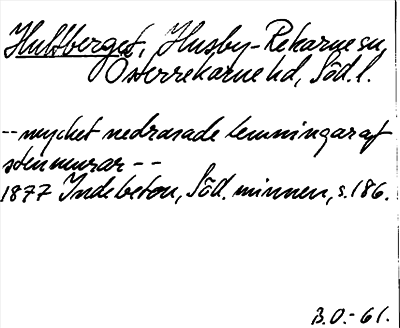 Hultberget, Husby-Rekarne sn,
Österrekarne hd, Söd. l.
--mycket nedrasade lemningar af
stenmurar--
1877 Indebetou, Söd. minnen, s. 186.
B.O.-61.